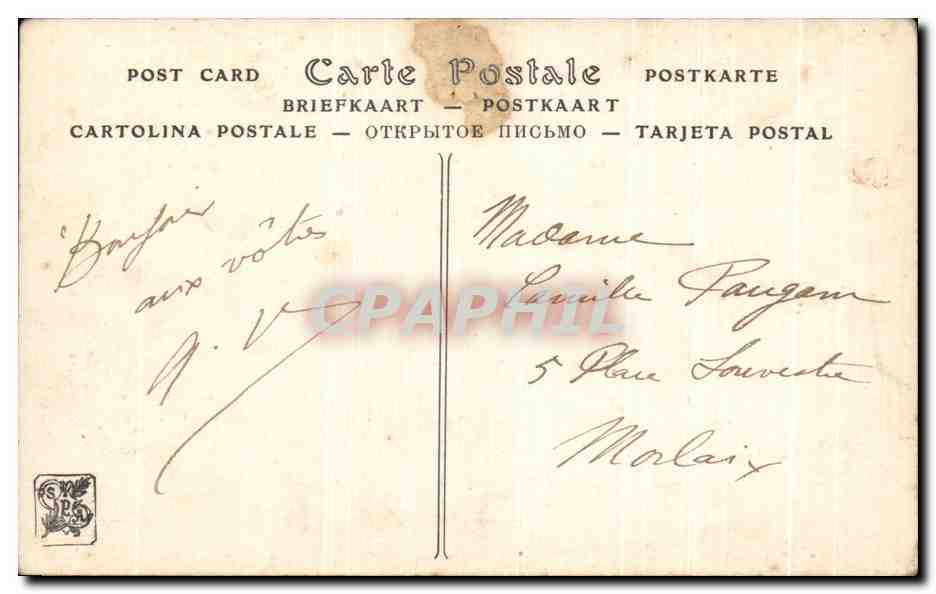 POST CARD Carte Postale POSTKARTE
BRIEFKAART — POSTKAART
CARTOLINA POSTALE — ОТКРЫТОЕ ПИСЬМО — TARJETA POSTAL
Bonjour
aux vôtres
A. V
Madame
Camille Paugam
5 Place Souvestre
Morlaix
CPAPHIL